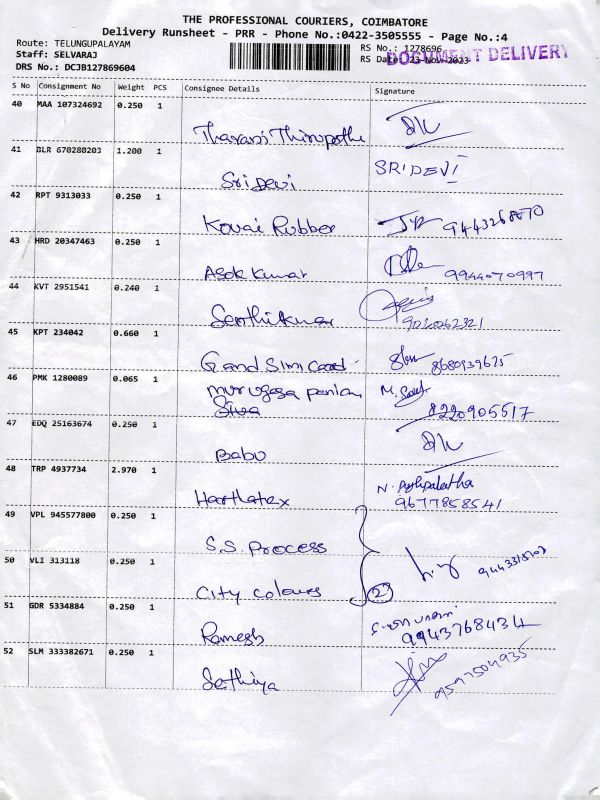 THE PROFESSIONAL COURIERS, COIMBATORE
Delivery Runsheet - PRR - Phone No.:0422-3505555 - Page No.:4
Route: TELUNGUPALAYAM
Staff: SELVARAJ
DRS No.: DCJB127869604
RS No.: 1278696
RS Date: 23-Nov-2023
DOCUMENT DELIVERY
S No Consignment No Weight PCS Consignee Details Signature
40 MAA 107324692 0.250 1
Tharani Thirupathi
41 BLR 670280203 1.200 1
Sri Devi SRIDEVI
42 RPT 9313033 0.250 1
Kovai Rubber
43 HRD 20347463 0.250 1
Asok Kumar 9944070997
44 KVT 2951541 0.240 1
Senthilkumar 9020062321
45 KPT 234042 0.660 1
Grand Simcard 8680939625
46 PMK 1280089 0.065 1
Murugasa Pandian
Siva 8220905517
47 EDQ 25163674 0.250 1
Babu
48 TRP 4937734 2.970 1
Hartlatex N. Pushpalatha
9677858541
49 VPL 945577800 0.250 1
S.S. Process
50 VLI 313118 0.250 1
City Colours 2
51 GDR 5334884 0.250 1
Ramesh 9943768434
52 SLM 333382671 0.250 1
Sathiya 9597504935